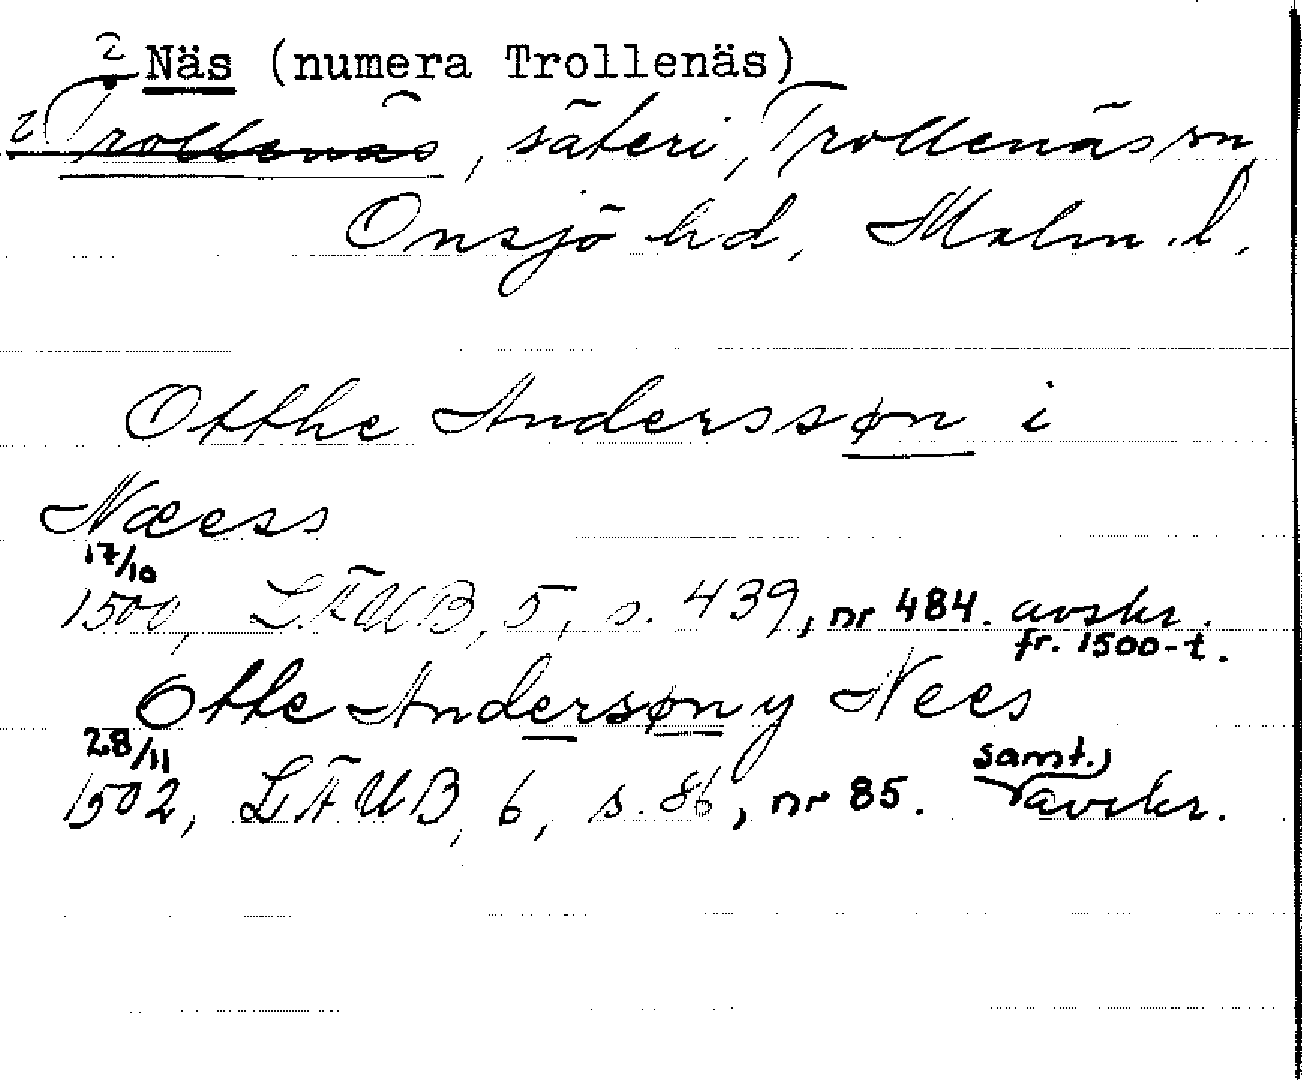 2 Näs (numera Trollenäs)
2 Trollenäs, säteri, Trollenäs sn,
Onsjö hd, Malm. l.
Otthe Anderssøn i
Næess
17/10
1500, LÄUB, 5, s. 439, nr 484. avskr.
fr. 1500-t.
Otte Andersøn y Nees
28/11 samt.
1502, LÄUB, 6, s. 86, nr 85. avskr.